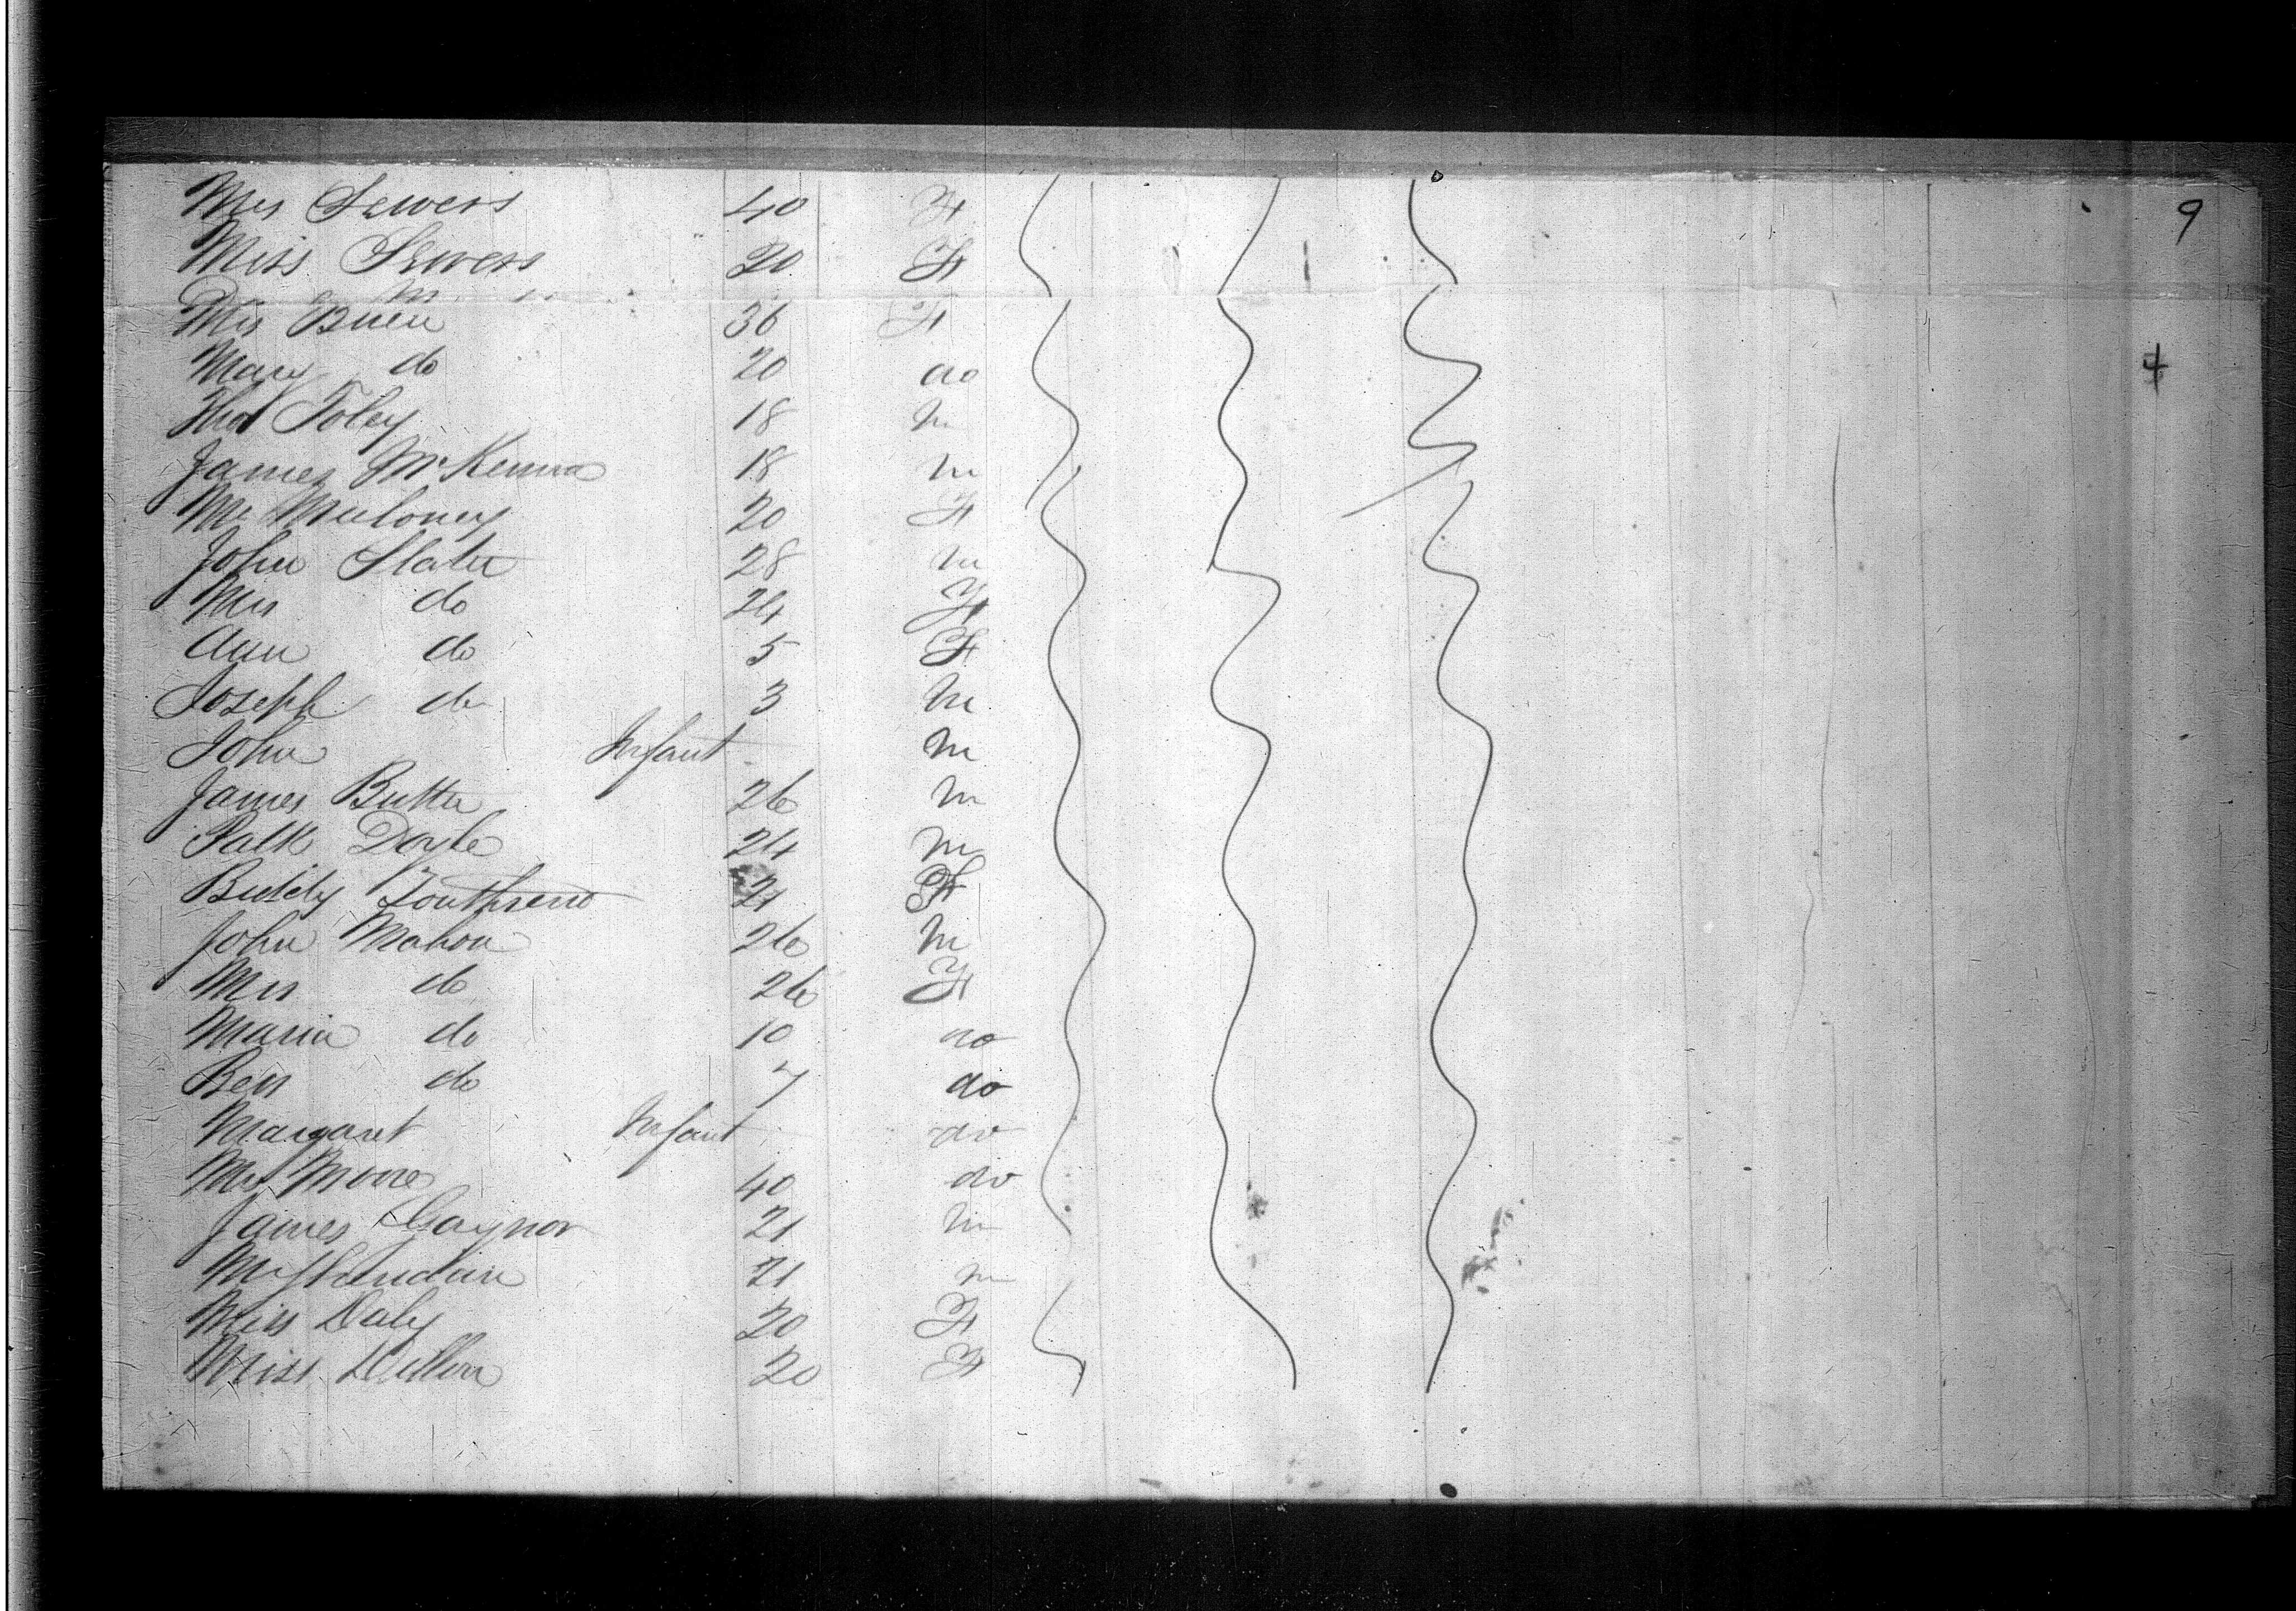 Mrs Sewers 40 F 9
Miss Sewers 20 F
Mrs 36 F
Mary do 20 do 4
Thos Foley 18 m
James McKenna 18 m
Mrs Muloney 20 F
John Slater 28 m
Mrs do 24 F
Ann do 5 F
Joseph do 3 m
John Infant m
James Butter 26 m
Patk Doyle 24 m
Biddy 21 F
John Mahon 26 m
Mrs do 26 F
Maria do 10 do
Bess do 7 do
Margaret Infant do
Mrs Moore 40 do
James Gaynor 21 m
21 m
Miss Daly 20 F
Miss Dillon 20 F